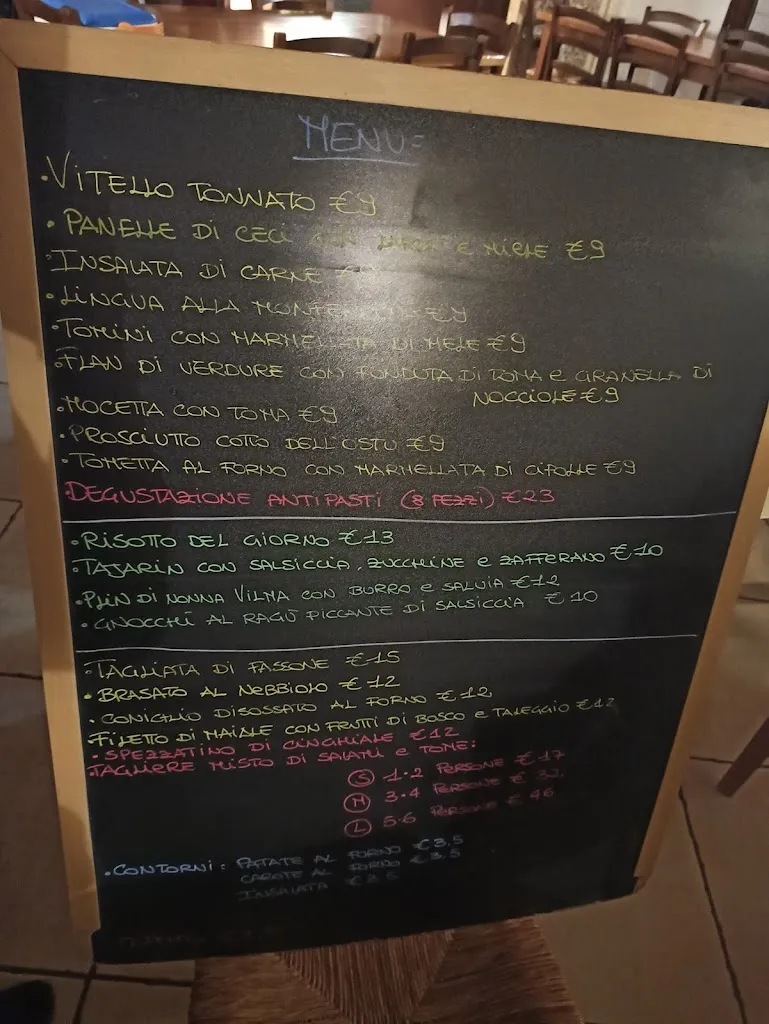 MENU:
• VITELLO TONNATO €9
• PANELLE DI CECI E MIELE €9
• INSALATA DI CARNE
• LINGUA ALLA €9
• TOMINI CON MARMELLATA DI MELE €9
• FLAN DI VERDURE CON FONDUTA DI TOMA E GRANELLA DI
NOCCIOLE €9
• MOCETTA CON TOMA €9
• PROSCIUTTO COTTO DELL'OSTU €9
• TOMETTA AL FORNO CON MARMELLATA DI CIPOLLE €9
• DEGUSTAZIONE ANTIPASTI (8 PEZZI) €23
• RISOTTO DEL GIORNO €13
• TAJARIN CON SALSICCIA, ZUCCHINE E ZAFFERANO €10
• PLIN DI NONNA VILMA CON BURRO E SALVIA €12
• GNOCCHI AL RAGÙ PICCANTE DI SALSICCIA €10
• TAGLIATA DI FASSONE €15
• BRASATO AL NEBBIOLO €12
• CONIGLIO DISOSSATO AL FORNO €12
• FILETTO DI MAIALE CON FRUTTI DI BOSCO E TALEGGIO €12
• SPEZZATINO DI CINGHIALE €12
• TAGLIERE MISTO DI SALAMI E TOME:
S 1-2 PERSONE €17
M 3-4 PERSONE € 32
L 5-6 PERSONE € 46
• CONTORNI: PATATE AL FORNO €3.5
CAROTE AL FORNO €3.5
INSALATA €3.5